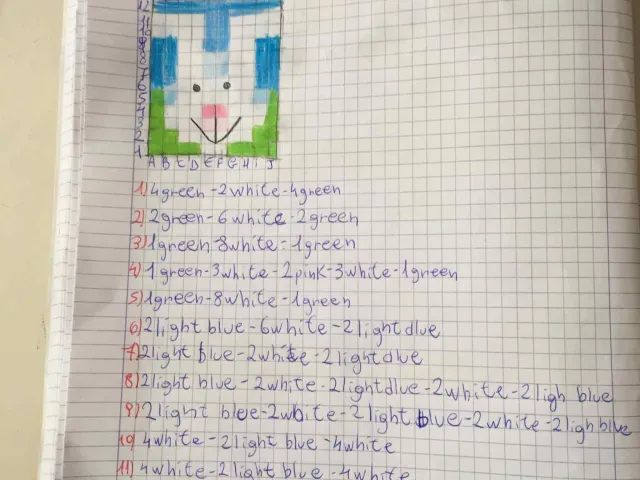 12
11
10
9
8
7
6
5
4
3
2
1
A B C D E F G H I J
1) 4green-2white-4green
2) 2green-6white-2green
3) 1green-8white-1green
4) 1green-3white-2pink-3white-1green
5) 1green-8white-1green
6) 2light blue-6white-2lightdlue
7) 2light blue-2white-2lightdlue
8) 2light blue-2white-2lightdlue-2white-2ligh blue
9) 2light blue-2white-2light blue-2white-2lighblue
10) 4white-2light blue-4white
11) 4white-2light blue-4white